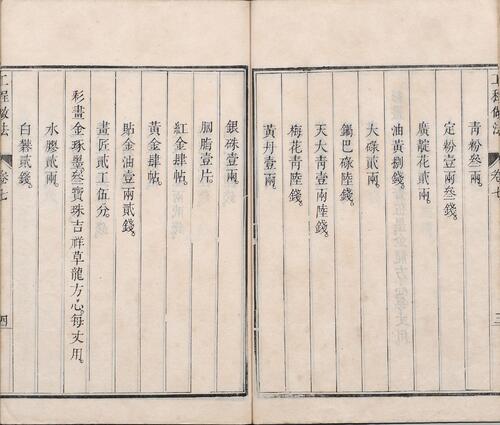 工程做法
卷七
三
青粉叁兩
定粉壹兩叁錢
廣靛花貳兩
油黃捌錢
大碌貳兩
鍋巴碌陸錢
天大青壹兩陸錢
梅花青陸錢
黃丹壹兩
銀硃壹兩
胭脂壹片
紅金肆帖
黃金肆帖
貼金油壹兩貳錢
畫匠貳工伍分
彩畫金琢墨叁寶珠吉祥草龍方心每丈用
水膠貳兩
白礬貳錢
工程做法
卷七
四